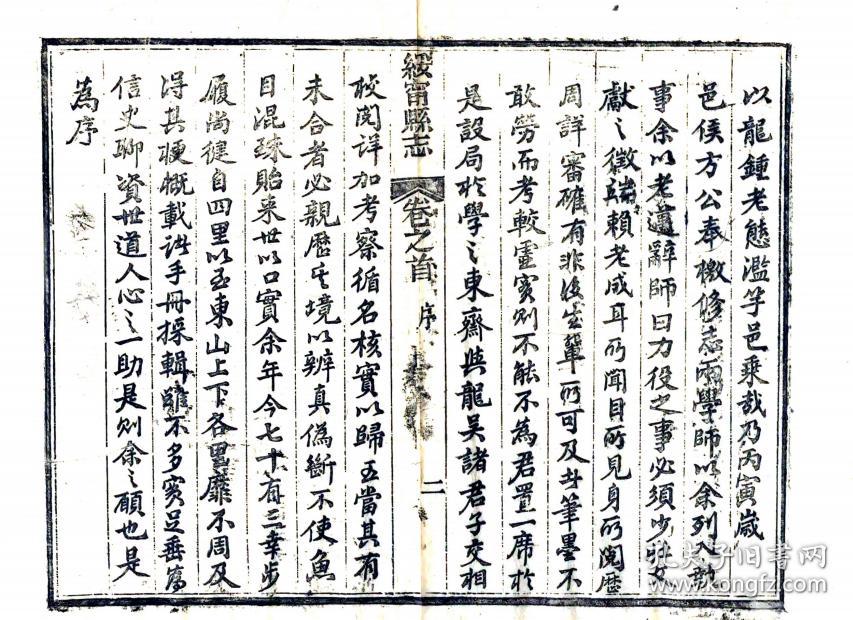 以龍鍾老態濫竽邑乘哉乃丙寅歲
邑侯方公奉檄修志兩學師以余列入執
事余以老邁辭師曰力役之事必須少壯文
獻之徵端賴老成耳所聞目所見身所閱歷
周詳審確有非後生輩所可及且筆墨不
敢勞而考較虛實則不能不為君置一席於
是設局於學之東齋與龍吳諸君子交相
綏甯縣志 卷之首 序 二
校閱詳加考察循名核實以歸至當其有
未合者必親歷其境以辨真偽斷不使魚
目混珠貽來世以口實余年今七十有三幸步
履尚健自四里以至東山上下各里靡不周及
得其梗概載諸手冊採輯雖不多實足垂為
信史聊資世道人心之一助是則余之願也是
為序
孔夫子旧书网
kongfz.com